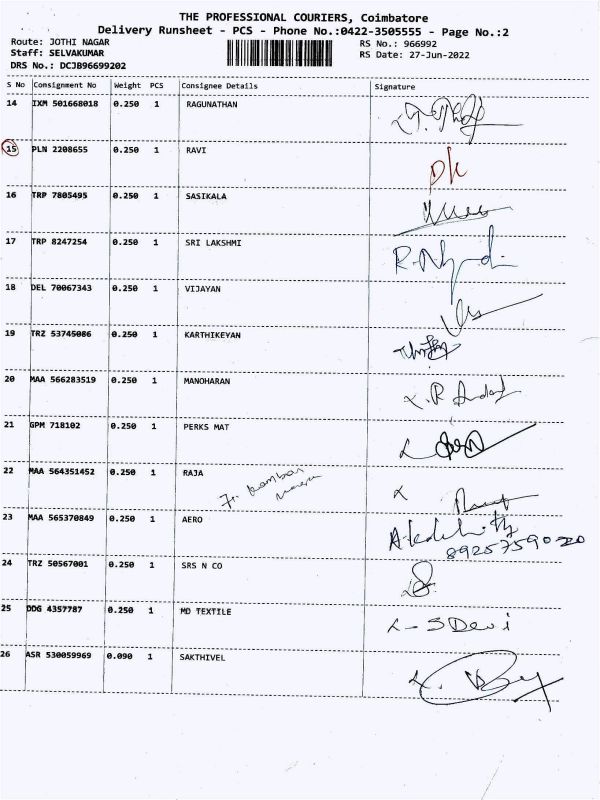 THE PROFESSIONAL COURIERS, Coimbatore
Delivery Runsheet - PCS - Phone No.:0422-3505555 - Page No.:2
Route: JOTHI NAGAR RS No.: 966992
Staff: SELVAKUMAR RS Date: 27-Jun-2022
DRS No.: DCJB96699202
S No Consignment No Weight PCS Consignee Details Signature
14 IXM 501668018 0.250 1 RAGUNATHAN
15 PLN 2208655 0.250 1 RAVI
16 TRP 7805495 0.250 1 SASIKALA
17 TRP 8247254 0.250 1 SRI LAKSHMI
18 DEL 70067343 0.250 1 VIJAYAN
19 TRZ 53745086 0.250 1 KARTHIKEYAN
20 MAA 566283519 0.250 1 MANOHARAN
21 GPM 718102 0.250 1 PERKS MAT
22 MAA 564351452 0.250 1 RAJA
23 MAA 565370849 0.250 1 AERO
8925759020
24 TRZ 50567001 0.250 1 SRS N CO
25 DDG 4357787 0.250 1 MD TEXTILE S Devi
26 ASR 530059969 0.090 1 SAKTHIVEL